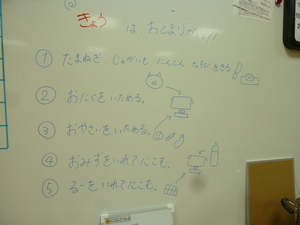 きょう
は、おとまりかい!!
① たまねぎ、じゃがいも にんじん
② おにくをいためる。
③ おやさいをいためる。
④ おみずをいれてにこむ。
⑤ るーをいれてにこむ。